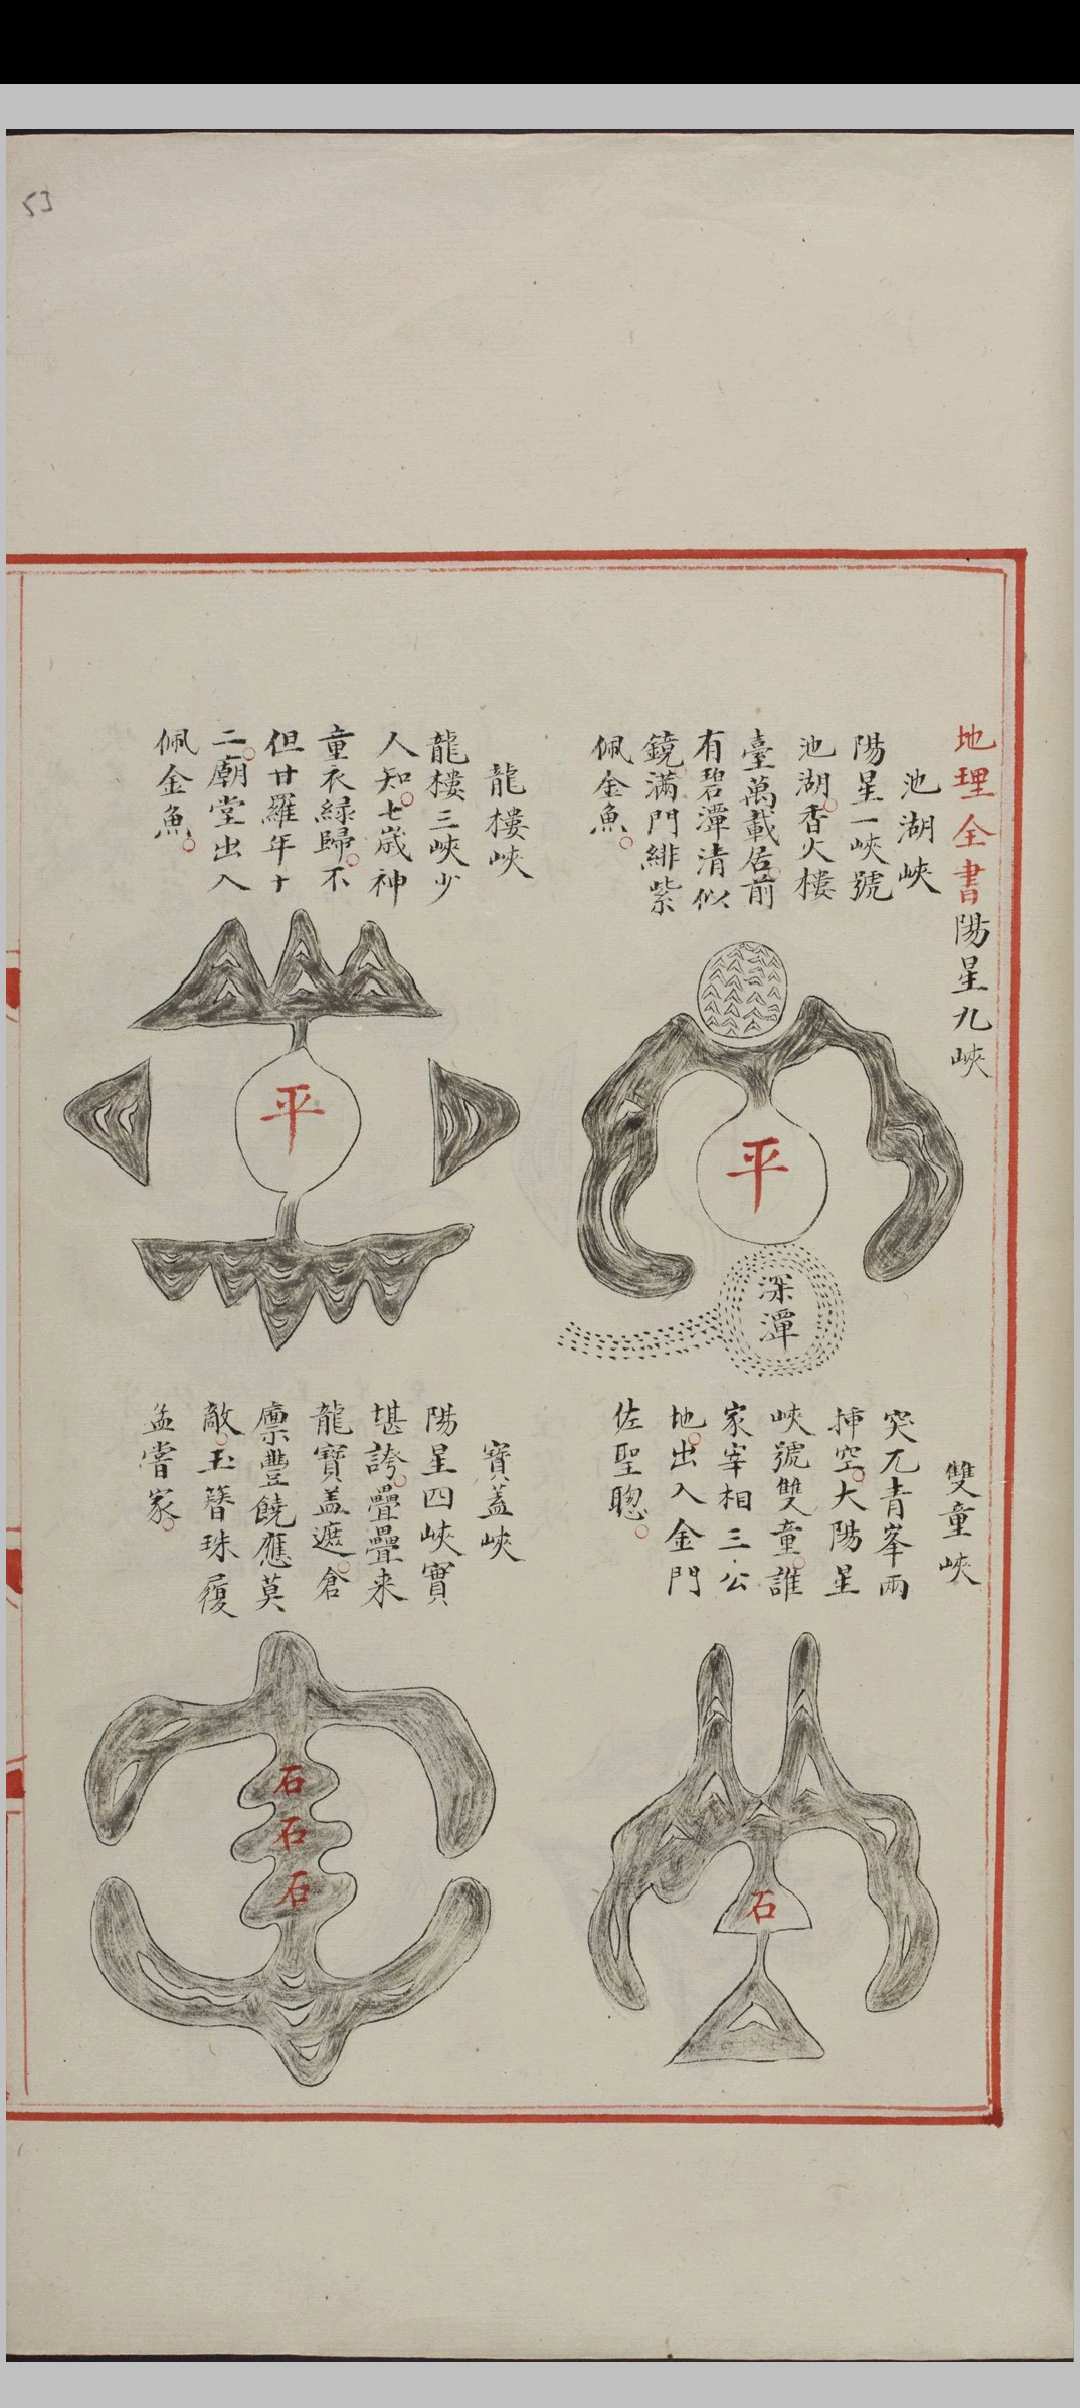 53
地理全書陽星九峽
池湖峽
陽星一峽號
池湖香火樓
臺萬載居前
有碧潭清似
鏡滿門緋紫
佩金魚
平
深潭
雙童峽
突兀青峯兩
挿空大陽星
峽號雙童誰
家宰相三公
地出入金門
佐聖聰
石
龍樓峽
龍樓三峽少
人知七歲神
童衣緑歸不
但甘羅年十
二廟堂出入
佩金魚
平
寶蓋峽
陽星四峽實
堪誇疊疊来
龍寶盖遮倉
廪豐饒應莫
敵玉簪珠履
孟嘗家
石
石
石